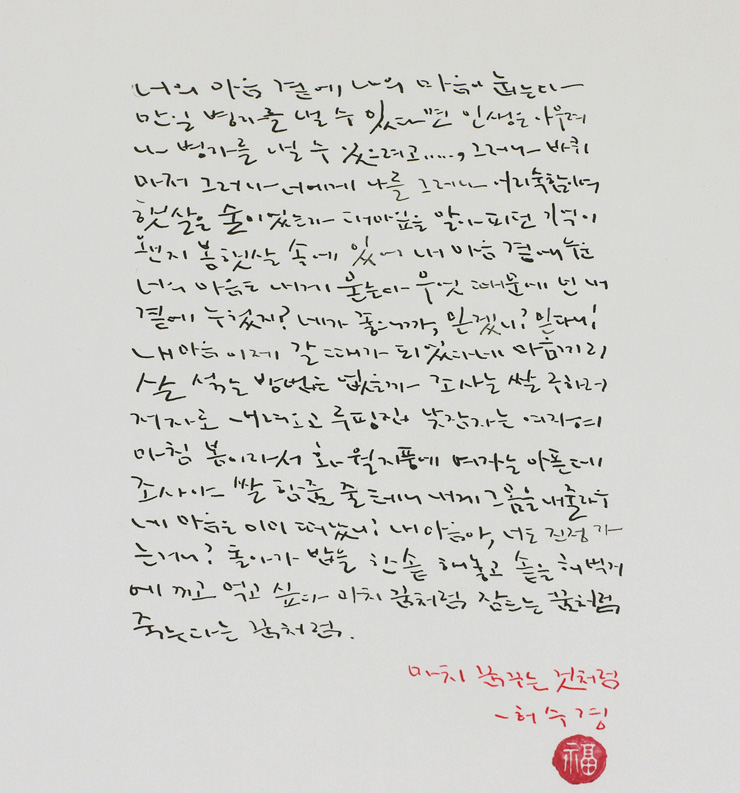 너의 마음 곁에, 나의 마음이 눕는다
만일 병가를 낼 수 있다면 인생은 아무려
나 병가를 낼 수 있으려고....., 그러나 바퀴
마저 그러나 너에게 나를 그러나 어리숙함이여
햇살은 술이었는가 대마잎을 말아 피던 기억이
왠지 봄햇살 속에 있어 내 마음 곁에 누운
너의 마음도 내게 묻는다 무엇 때문에 넌 내
곁에 누웠지? 네가 좋으니까, 믿겠니? 믿다니!
내 마음 이제 갈 때가 되었다네 마음끼리
살 섞는 방법은 없을까 조사는 쌀 구하러
저자로 내려오고 루핑집 낮잠자는 여자여
마침 봄이라서 화월지풍에 여자는 아픈데
조사야 쌀 한줌 줄테니 내게 그 몸을 내줄라우
네 마음은 이미 떠났니? 내 마음아, 너도 진정 가
는거니? 돌아가 밥을 한솥 해놓고 솥을 허벅지
에 끼고 먹고 싶다 마치 꿈처럼 잠드는 꿈처럼
죽는다는 꿈처럼.
마치 꿈꾸는 것처럼
-허수경
福